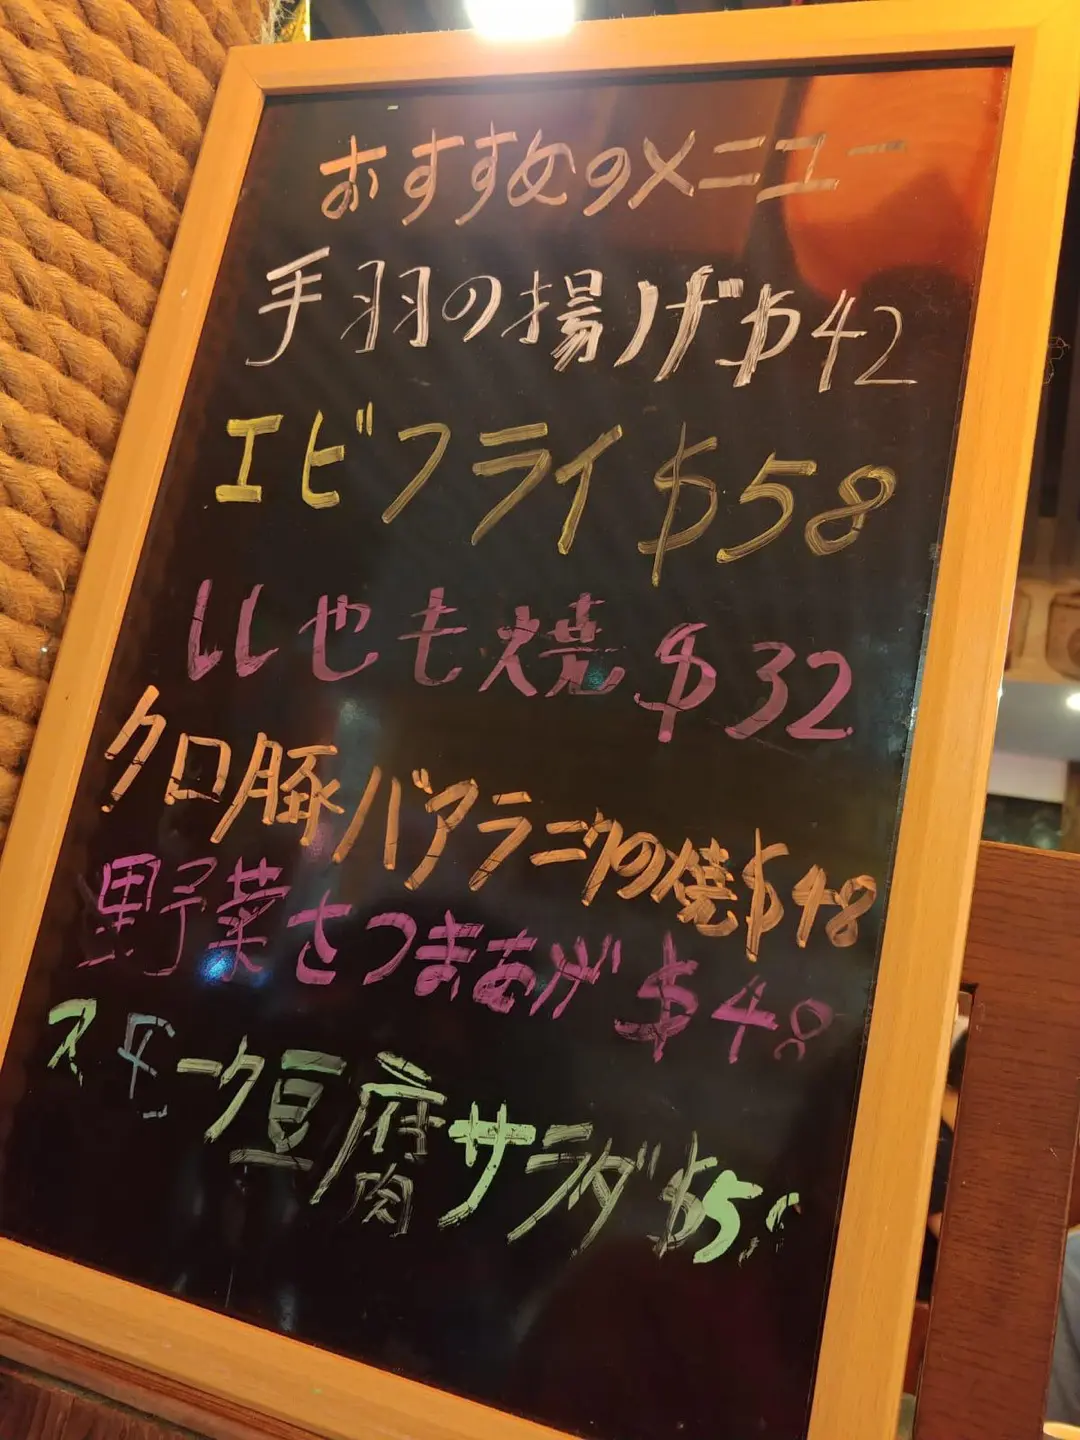 おすすめのメニュー
手羽の揚げ $42
エビフライ $58
ししゃも焼 $32
クロ豚バアラニクの焼 $48
野菜さつまあげ $48
スモーク豆腐サラダ